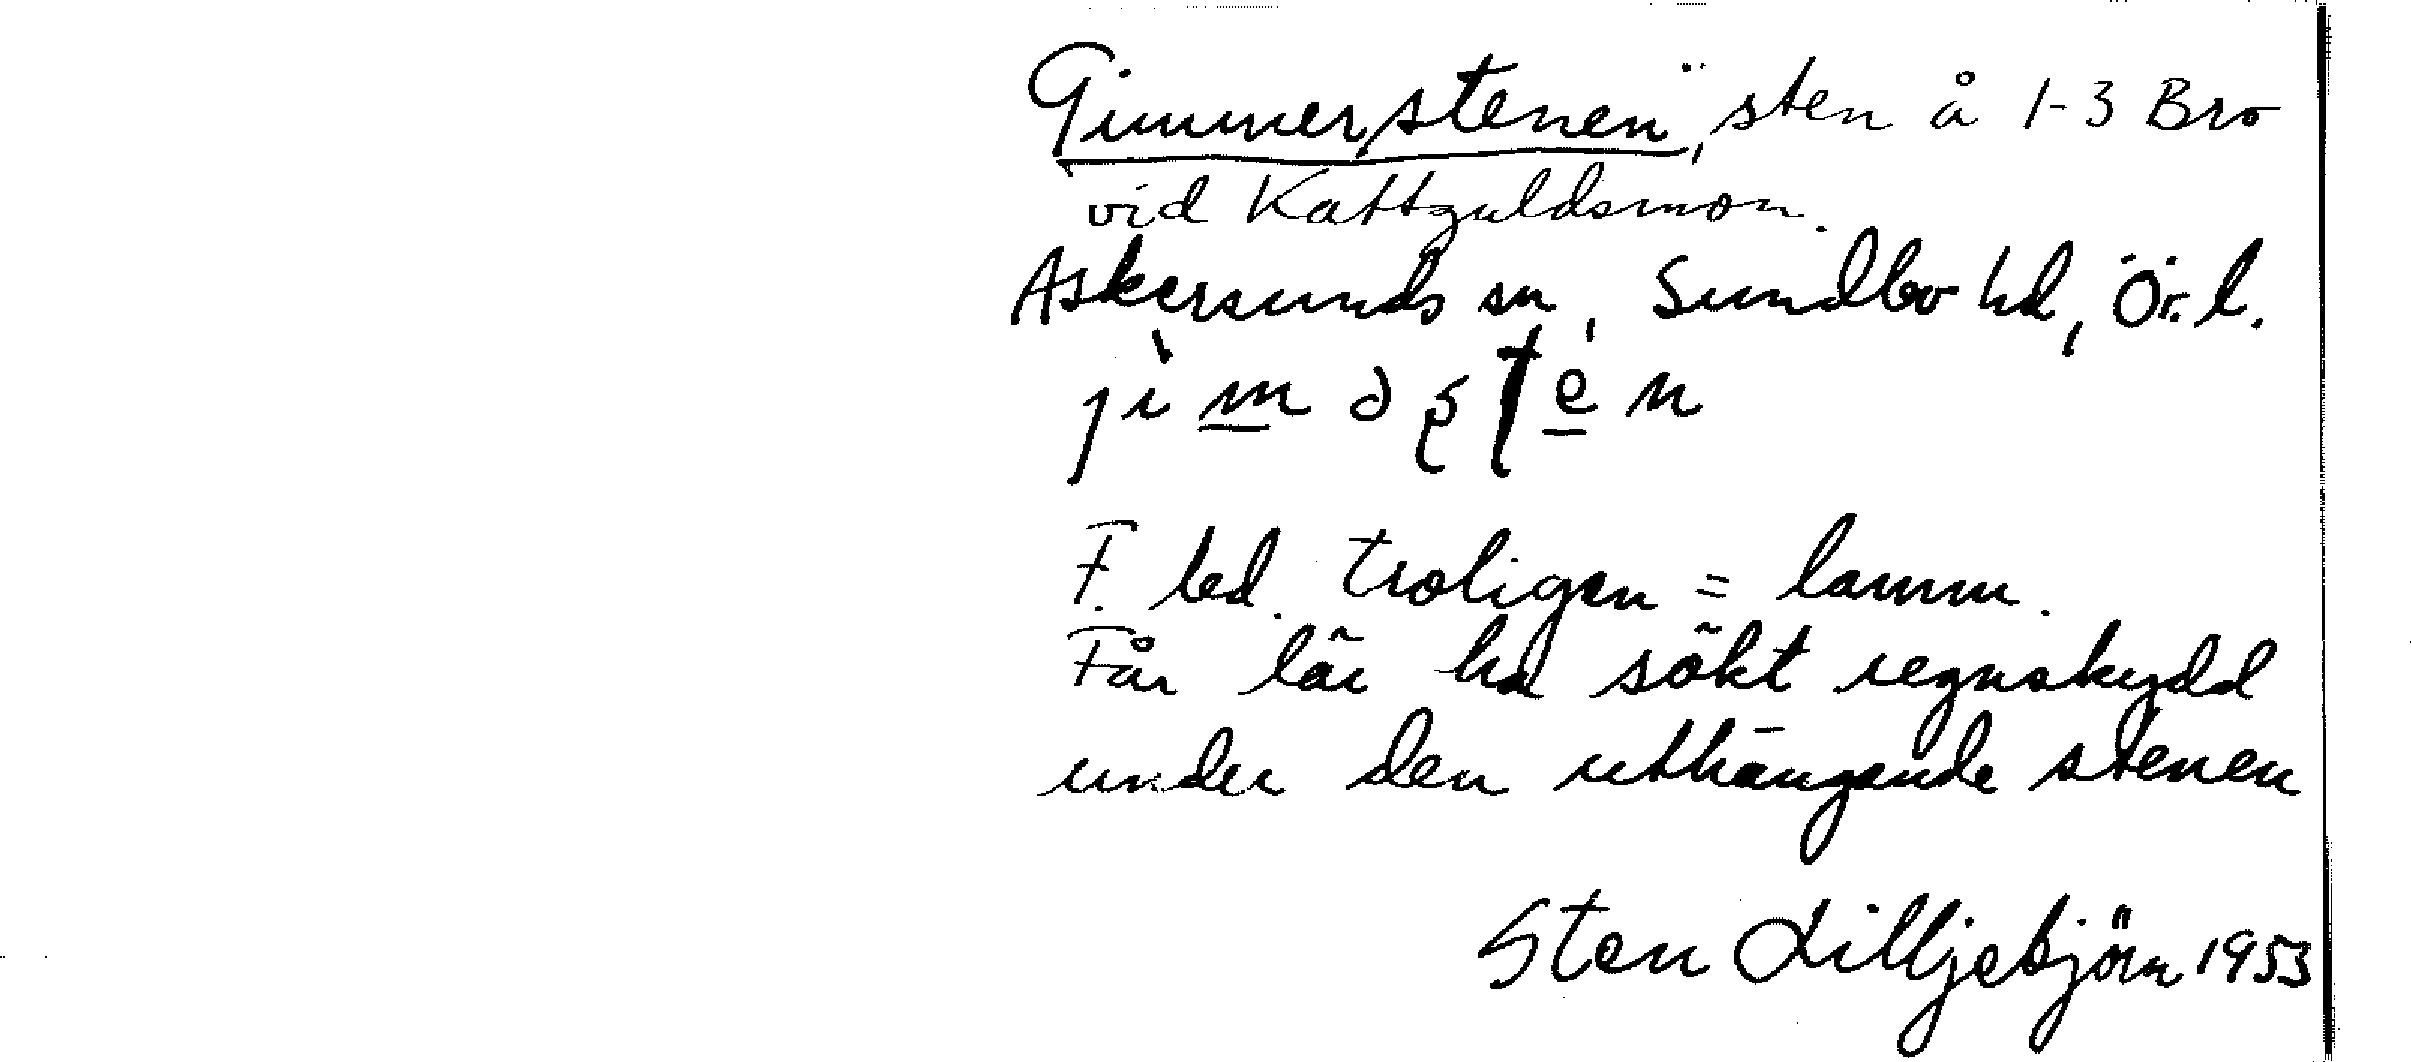 Gimmerstenen", sten å 1-3 Bro
vid Kattguldsmon.
Askersunds sn, Sundbo hd, Ör. l.
F. led. troligen = lamm.
Får lär ha sökt regnskydd
under den uthängande stenen
Sten Lilljebjörn 1953